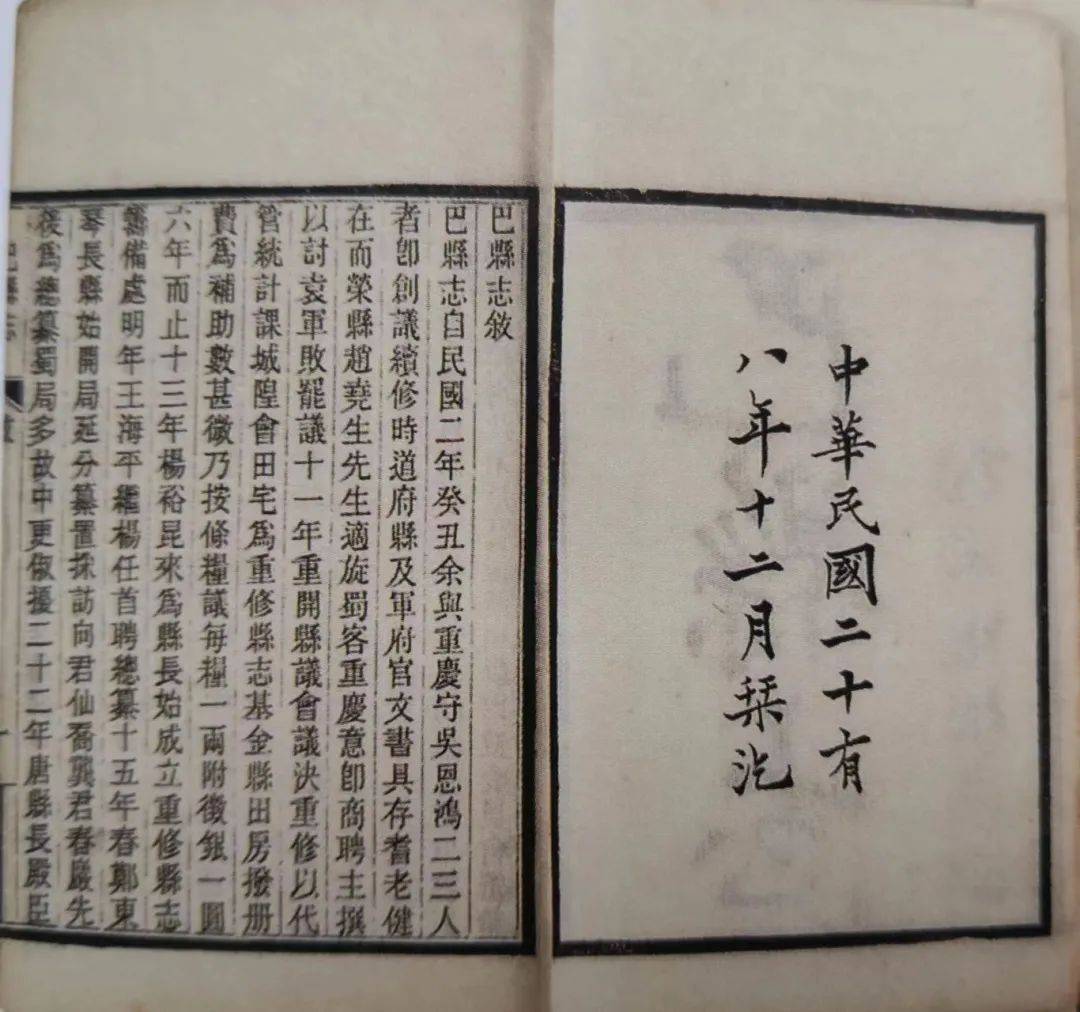 中華民國二十有
八年十二月栞汔
巴縣志敘
巴縣志自民國二年癸丑余與重慶守吳恩鴻二三人
者卽創議續修時道府縣及軍府官文書具存耆老健
在而榮縣趙堯生先生適旋蜀客重慶意卽商聘主撰
以討袁軍敗罷議十一年重開縣議會議決重修以代
管統計課城隍會田宅爲重修縣志基金縣田房撥册
費爲補助數甚微乃按條糧議每糧一兩附徵銀一圓
六年而止十三年楊裕昆來爲縣長始成立重修縣志
籌備處明年王海平繼楊任首聘總纂十五年春鄭東
琴長縣始開局延分纂置採訪向君仙喬龔君春巖先
後爲總纂蜀局多故中更俶擾二十二年唐縣長殿臣
巴縣志